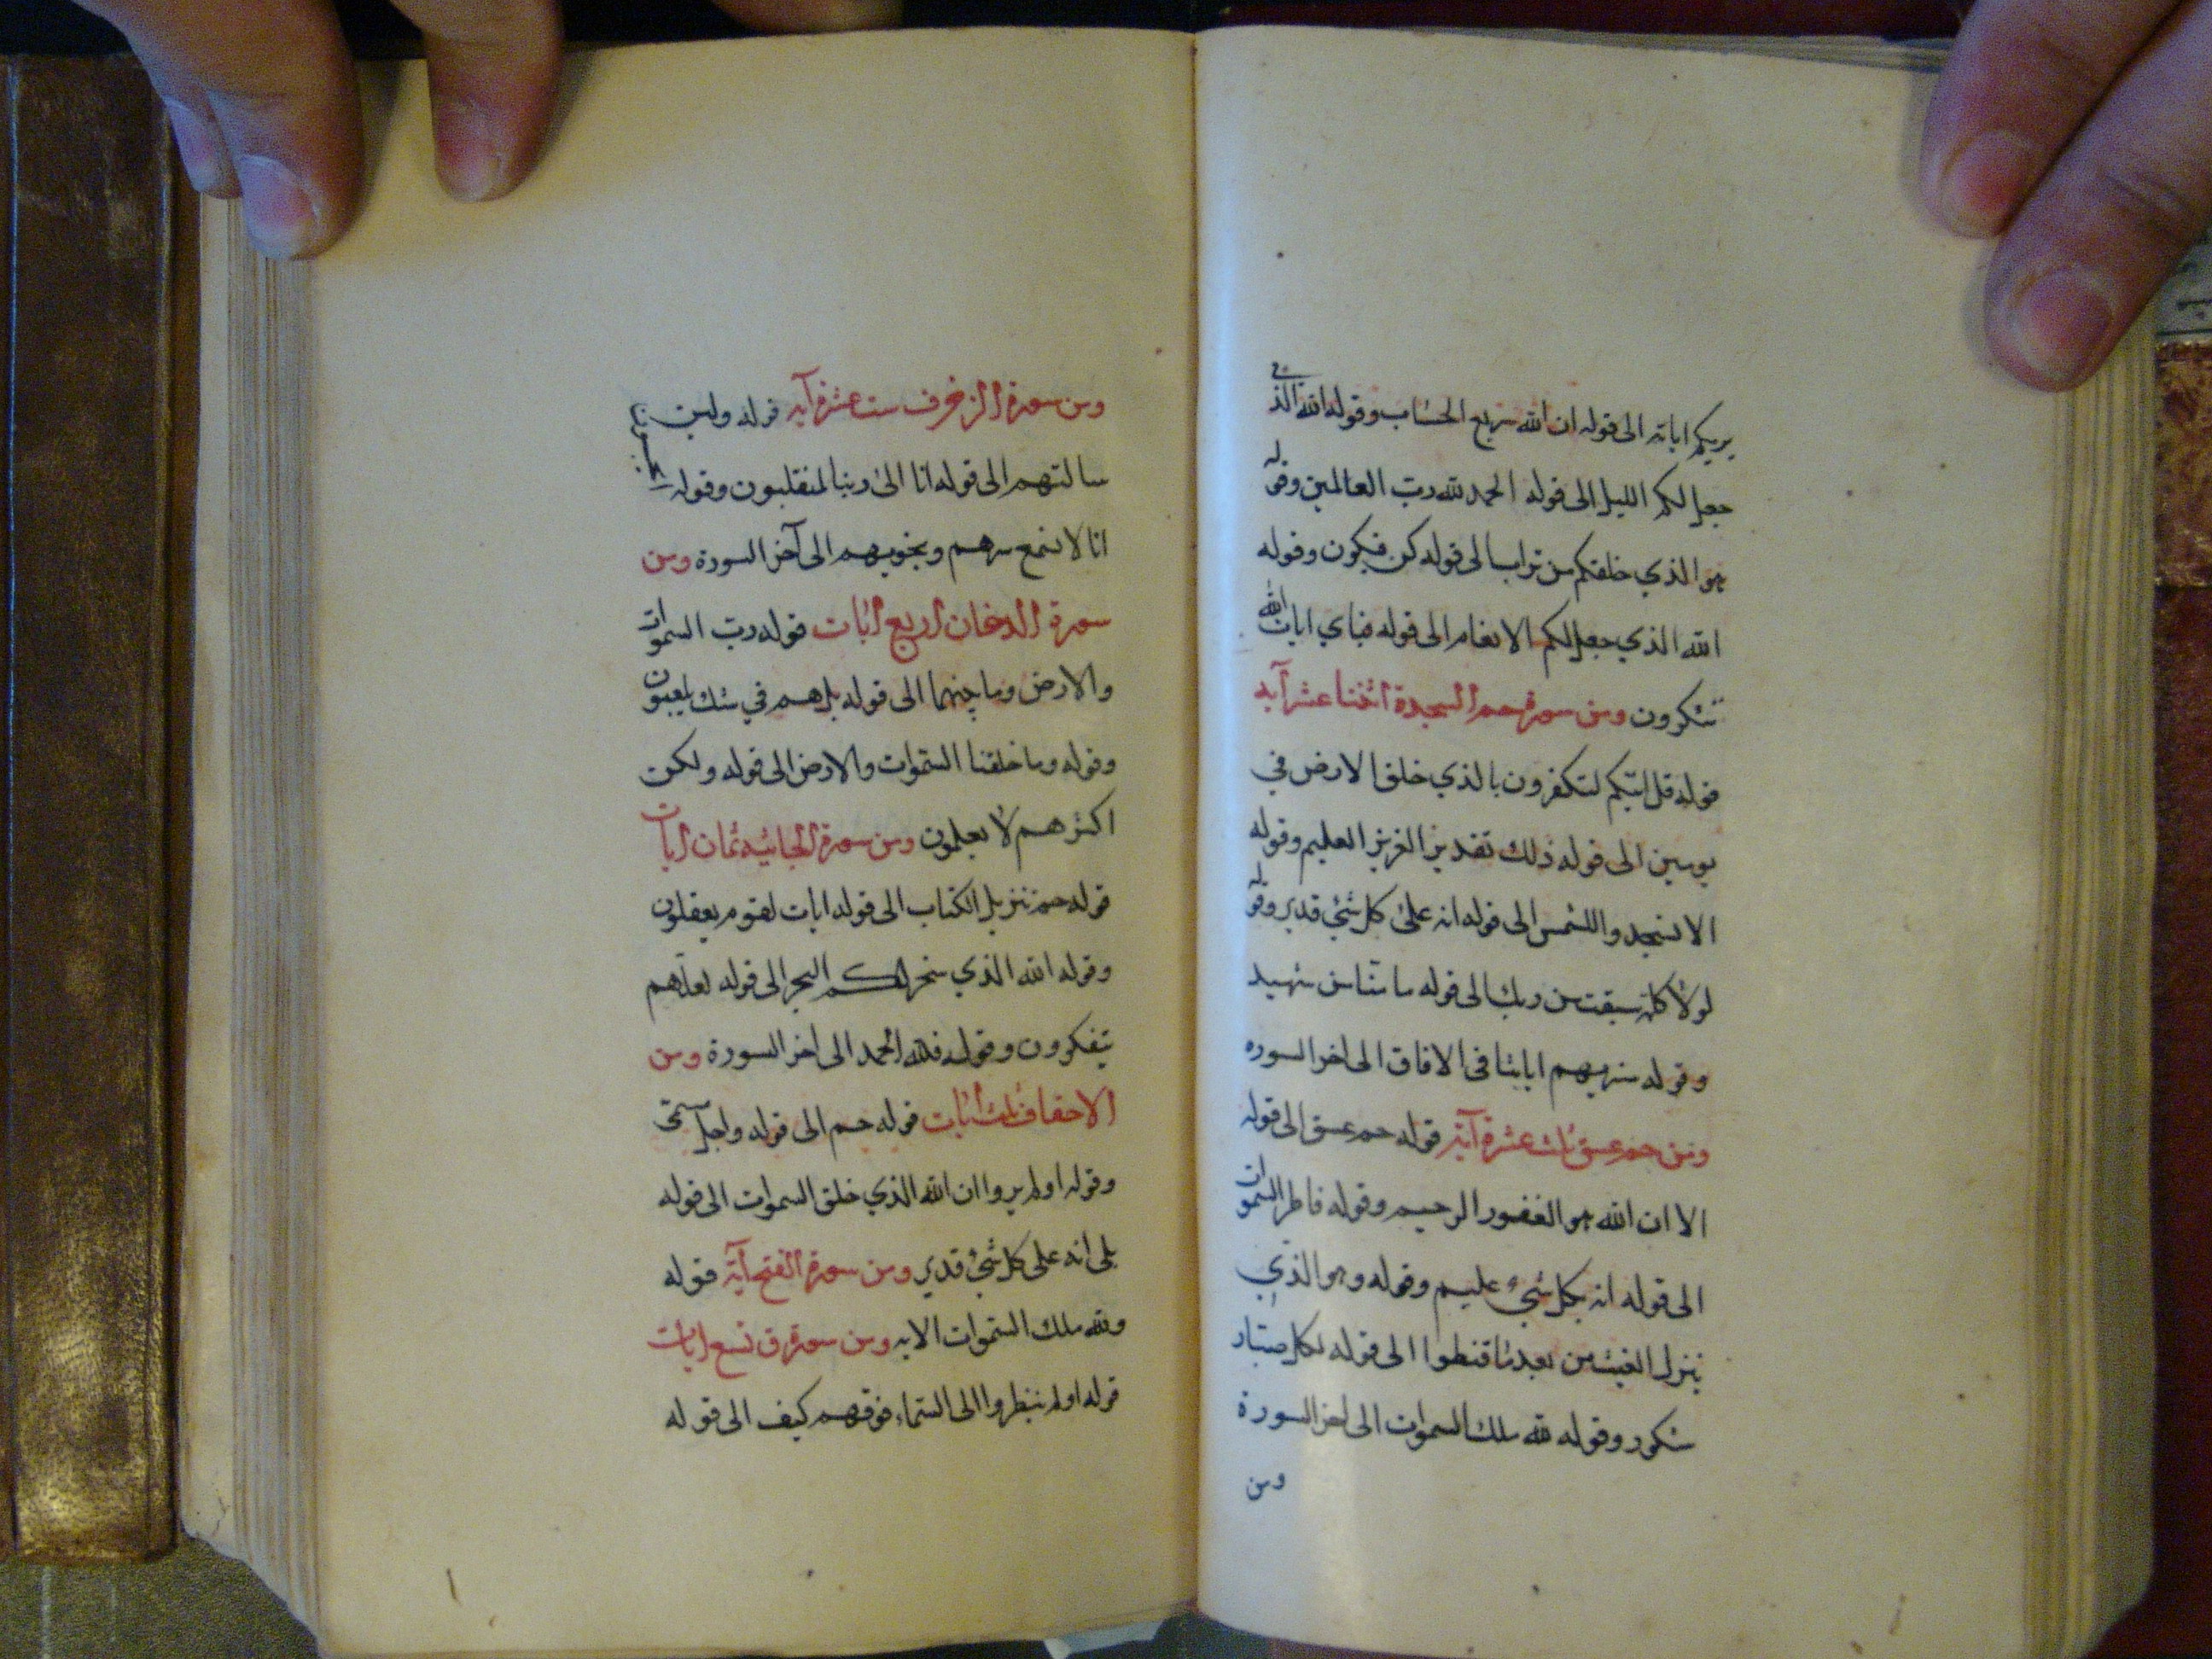 يريكم اياته الى قوله ان الله سريع الحساب وقوله الله الذي
جعل لكم الليل الى قوله الحمد لله رب العالمين وقوله
هو الذي خلقكم من تراب الى قوله كن فيكون وقوله
الله الذي جعل لكم الانعام الى قوله فباي ايات الله
تنكرون ومن سورة حم السجدة اثنتا عشر آية
قوله قل ائنكم لتكفرون بالذي خلق الارض في
يومين الى قوله ذلك تقدير العزيز العليم وقوله
لا تسجدوا للشمس الى قوله انه على كل شئ قدير وقوله
لولا كلمة سبقت من ربك الى قوله ما منا من شهيد
وقوله سنريهم اياتنا في الافاق الى اخر السوره
ومن حم عسق ثلث عشرة آية قوله حم عسق الى قوله
الا ان الله هو الغفور الرحيم وقوله فاطر السموات
الى قوله انه بكل شئ عليم وقوله وهو الذي
ينزل الغيث من بعد ما قنطوا الى قوله لكل صبار
شكور وقوله لله ملك السموات الى اخر السورة
ومن
ومن سورة الزخرف ست عشرة آية قوله ولئن
سالتهم الى قوله انا الى ربنا لمنقلبون وقوله
انا لا نسمع سرهم ونجويهم الى آخر السورة ومن
سورة الدخان اربع ايات قوله رب السموات
والارض وما بينهما الى قوله بل هم في شك يلعبون
وقوله وما خلقنا السموات والارض الى قوله ولكن
اكثرهم لا يعلمون ومن سورة الجاثيه ثمان ايات
قوله حم تنزيل الكتاب الى قوله ايات لقوم يعقلون
وقوله الله الذي سخر لكم البحر الى قوله لعلهم
يتفكرون وقوله فلله الحمد الى اخر السورة ومن
الاحقاف ثلث ايات قوله حم الى قوله واجل مسمى
وقوله اولم يروا ان الله الذي خلق السموات الى قوله
بلى انه على كل شئ قدير ومن سورة الفتح آية قوله
ولله ملك السموات الايه ومن سورة ق تسع ايات
قوله اولم ينظروا الى السماء فوقهم كيف الى قوله